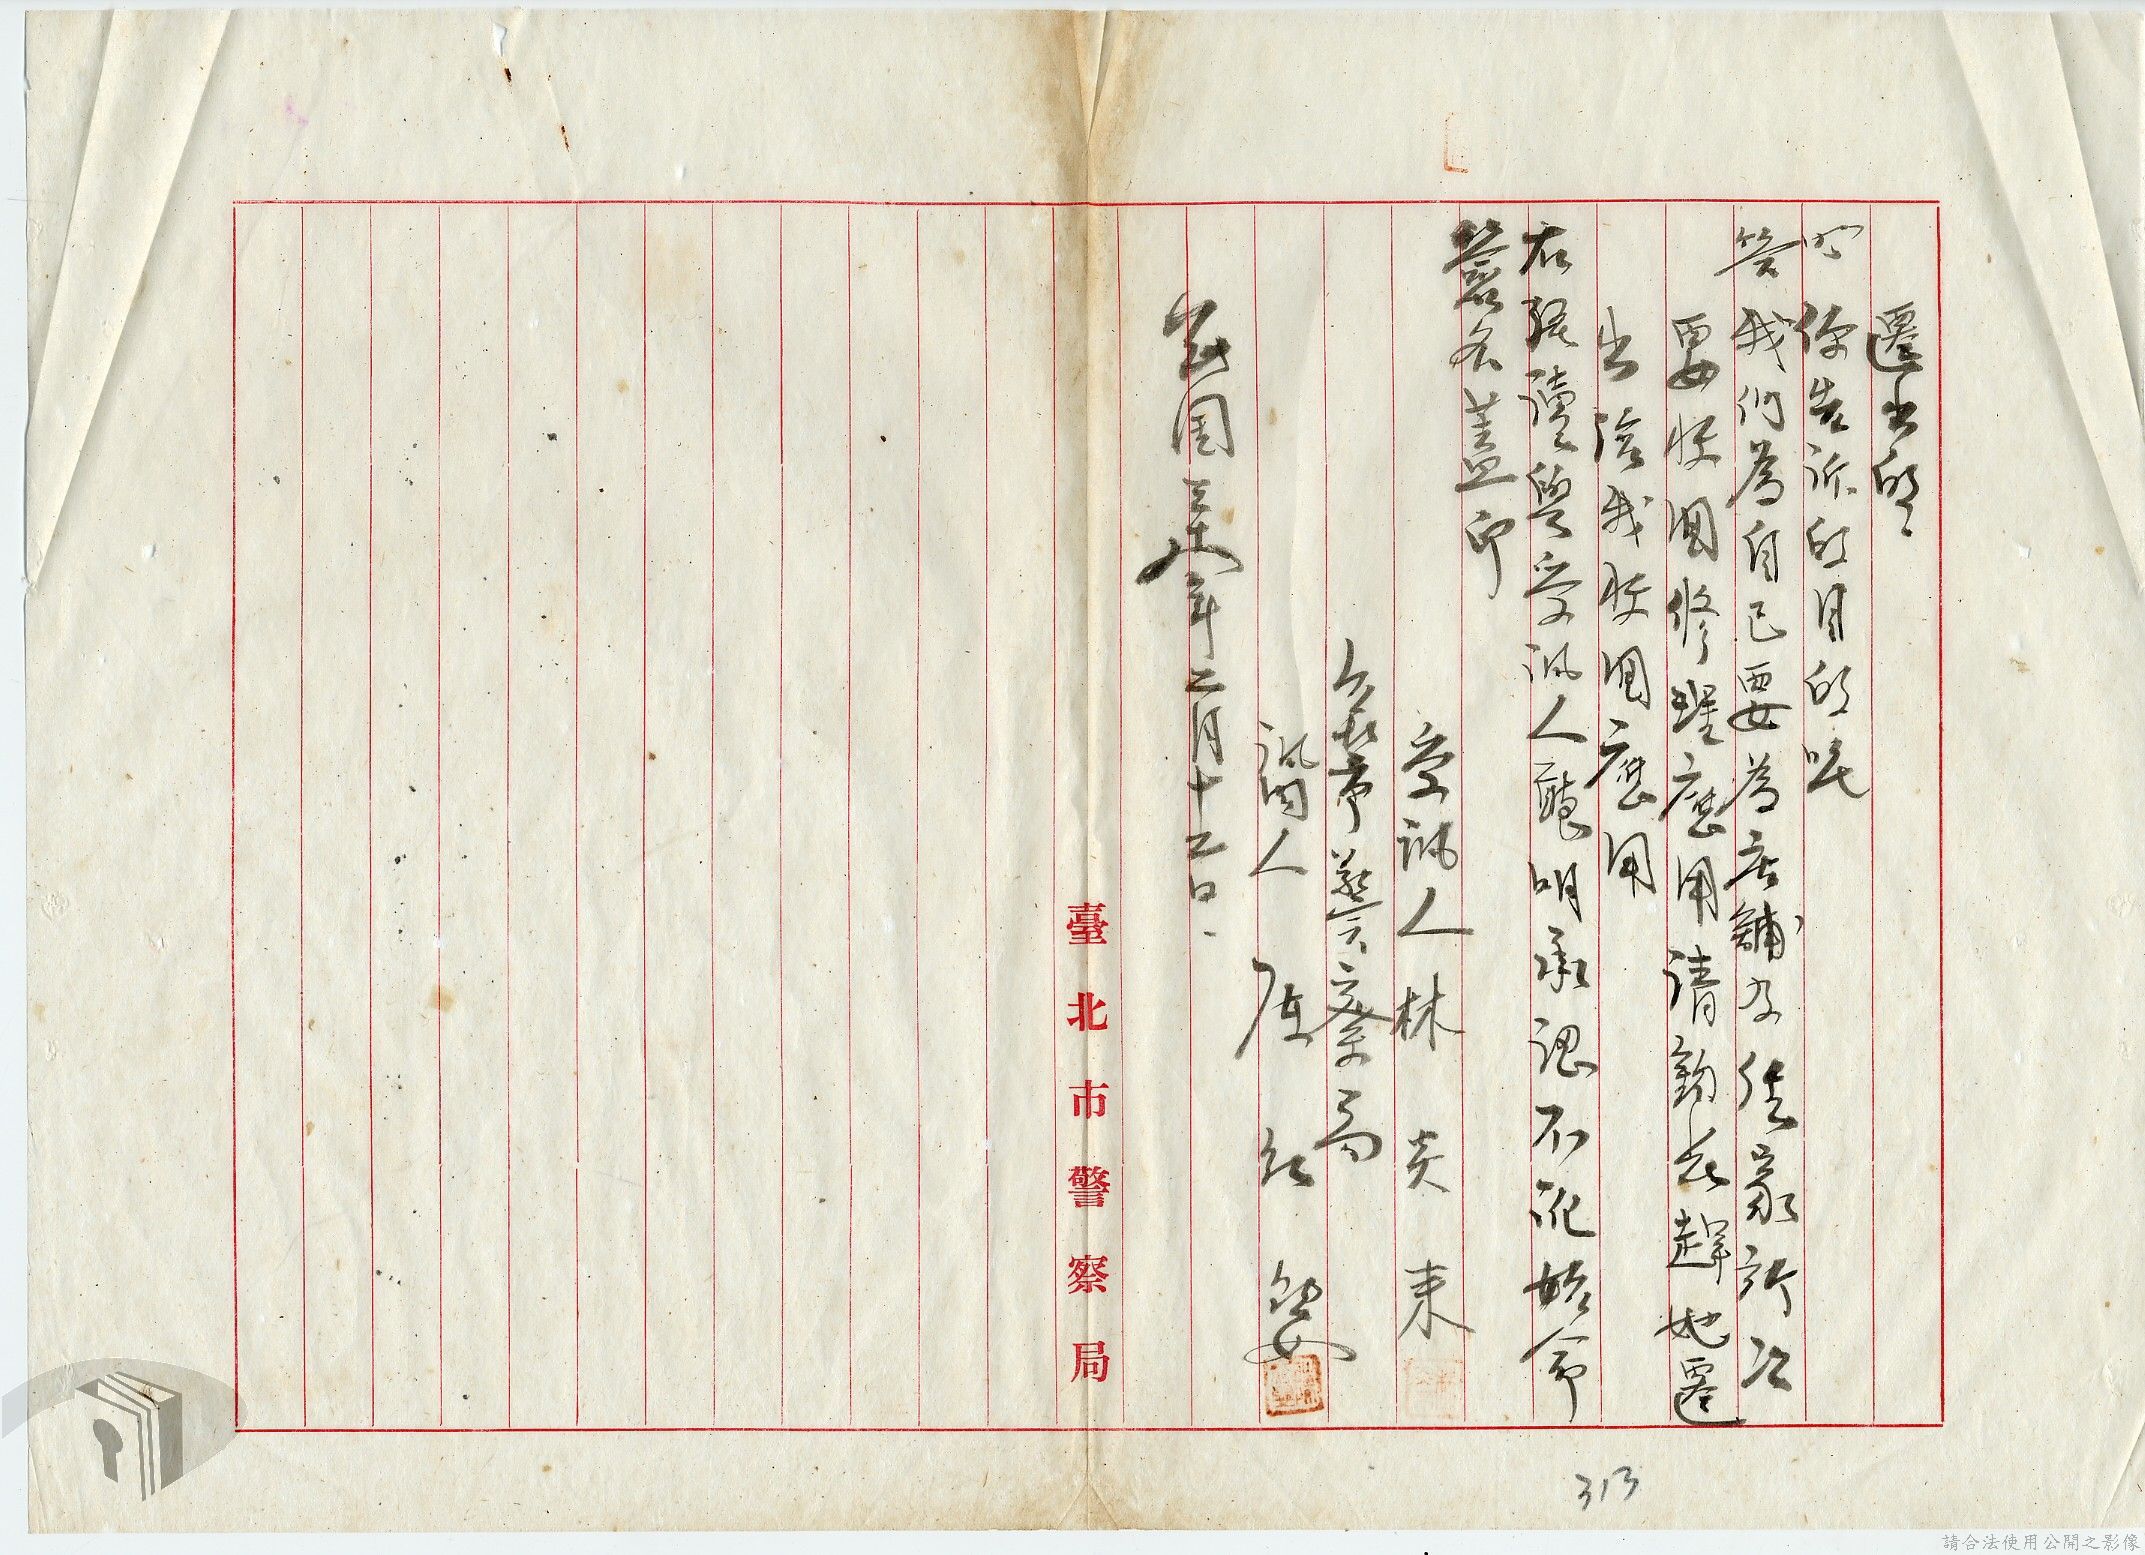 遷出的
問 你告訴的目的呢
答 我們為自己要為店舖及住家所以
要收回修理應用請勸告趕她遷
出給我收回應用
右筆錄讀與受訊人聽明承認不訛始命
簽名蓋印
受訊人 林炎来
台北市警察局
訊問人
民國三十八年二月十二日
臺北市警察局
313
請合法使用公開之影像